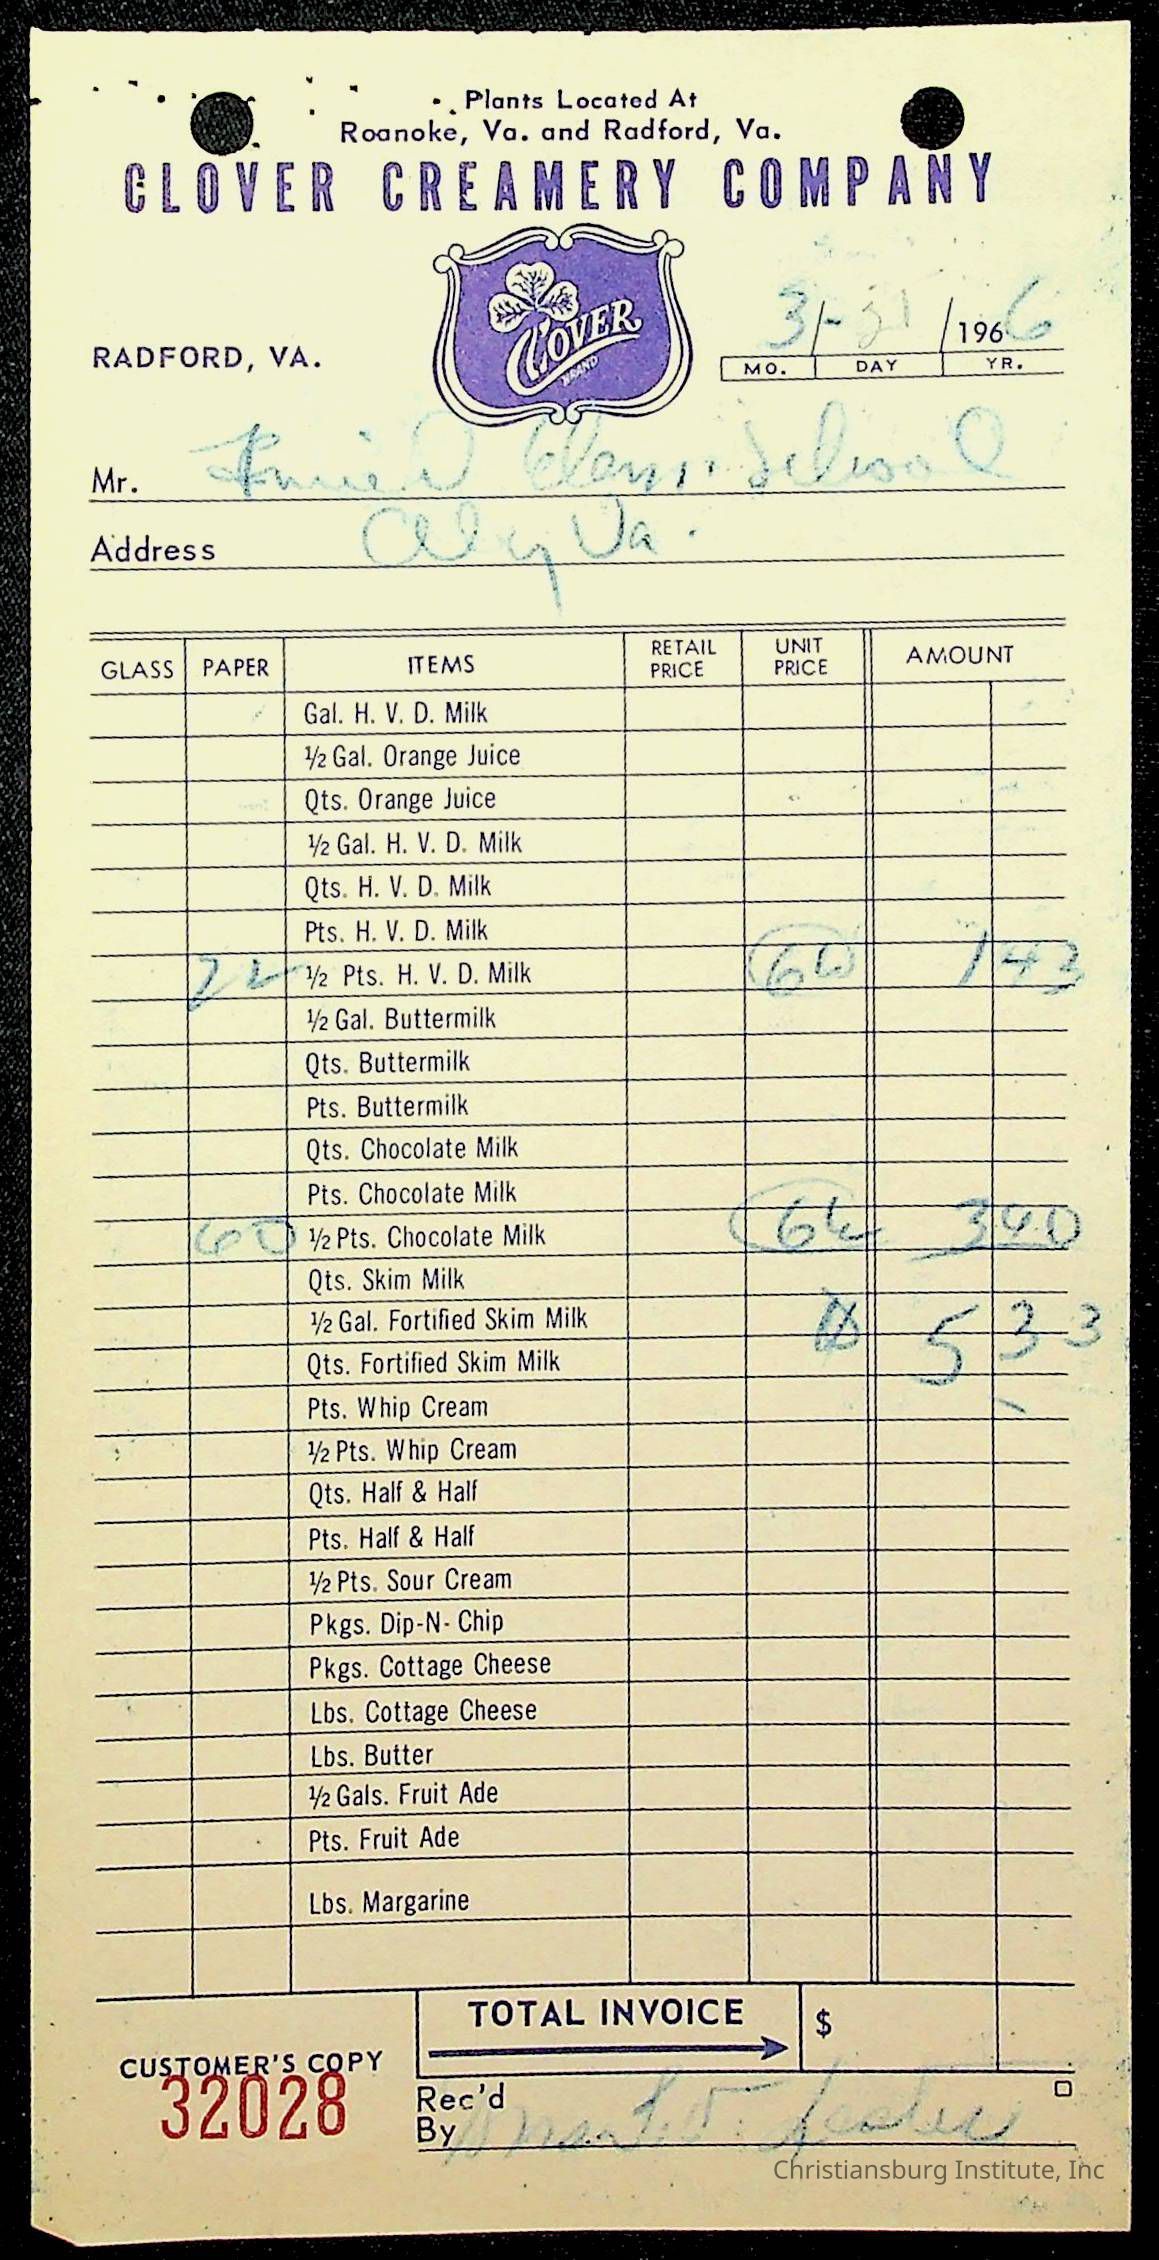 Plants Located At
Roanoke, Va. and Radford, Va.
CLOVER CREAMERY COMPANY
CLOVER
BRAND
RADFORD, VA.
3/-31/1966
MO. DAY YR.
Mr. School
Address Va.
GLASS PAPER ITEMS RETAIL PRICE UNIT PRICE AMOUNT
Gal. H. V. D. Milk
½ Gal. Orange Juice
Qts. Orange Juice
½ Gal. H. V. D. Milk
Qts. H. V. D. Milk
Pts. H. V. D. Milk
22 ½ Pts. H. V. D. Milk 1 43
½ Gal. Buttermilk
Qts. Buttermilk
Pts. Buttermilk
Qts. Chocolate Milk
Pts. Chocolate Milk
60 ½ Pts. Chocolate Milk 3 90
Qts. Skim Milk
½ Gal. Fortified Skim Milk 5 33
Qts. Fortified Skim Milk
Pts. Whip Cream
½ Pts. Whip Cream
Qts. Half & Half
Pts. Half & Half
½ Pts. Sour Cream
Pkgs. Dip-N-Chip
Pkgs. Cottage Cheese
Lbs. Cottage Cheese
Lbs. Butter
½ Gals. Fruit Ade
Pts. Fruit Ade
Lbs. Margarine
TOTAL INVOICE $
CUSTOMER'S COPY
32028
Rec'd
By
Christiansburg Institute, Inc